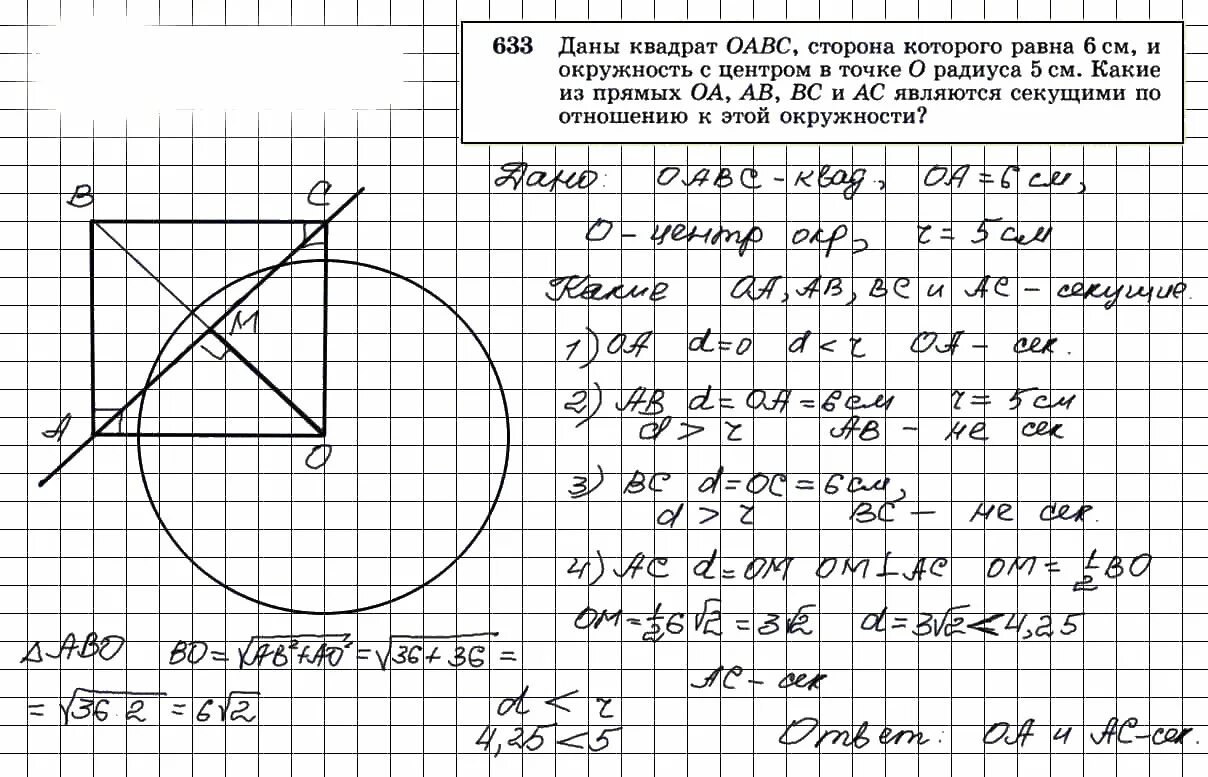 633 Даны квадрат OABC, сторона которого равна 6 см, и
окружность с центром в точке O радиуса 5 см. Какие
из прямых OA, AB, BC и AC являются секущими по
отношению к этой окружности?
Дано: OABC - квад, OA = 6 см,
O - центр окр, r = 5 см
Какие OA, AB, BC и AC - секущие.
1) OA d = 0 d < r OA - сек.
2) AB d = OA = 6 см r = 5 см
d > r AB - не сек
3) BC d = OC = 6 см,
d > r BC - не сек.
4) AC d = OM OM ⊥ AC OM = 1/2 BO
OM = 1/2 6√2 = 3√2 d = 3√2 < 4,25
AC - сек
d < r
4,25 < 5
Ответ: OA и AC - сек.
B
C
M
A
O
△ABO BO = √AB² + AO² = √36 + 36 =
= √36 · 2 = 6√2